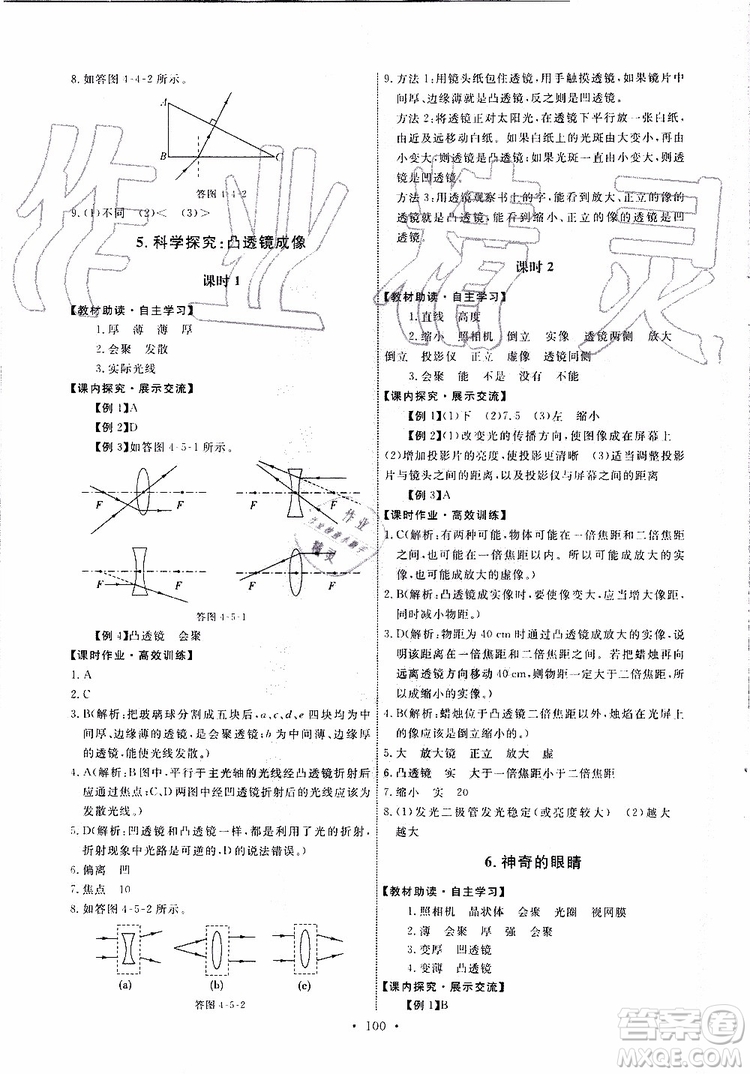 8. 如答图 4-4-2 所示。
A
B
C
答图 4-4-2
9. (1)不同 (2)< (3)>
5. 科学探究:凸透镜成像
课时 1
【教材助读·自主学习】
1. 厚 薄 薄 厚
2. 会聚 发散
3. 实际光线
【课内探究·展示交流】
【例 1】A
【例 2】D
【例 3】如答图 4-5-1 所示。
F F F F
F F F F
答图 4-5-1
【例 4】凸透镜 会聚
【课时作业·高效训练】
1. A
2. C
3. B(解析:把玻璃球分割成五块后,a、c、d、e 四块均为中
间厚、边缘薄的透镜,是会聚透镜;b 为中间薄、边缘厚
的透镜,能使光线发散。)
4. A(解析:B 图中,平行于主光轴的光线经凸透镜折射后
应通过焦点;C、D 两图中光线经凹透镜折射后应成为
发散光线。)
5. D(解析:凹透镜和凸透镜一样,都发生了光的折射,光
折射现象中光路可逆,D 的说法错误。)
6. 偏离 凹
7. 焦点 10
8. 如答图 4-5-2 所示。
(a) (b) (c)
答图 4-5-2
9. 方法 1:用镜头纸包住透镜,用手触摸透镜,如果镜片中
间厚、边缘薄就是凸透镜,反之则是凹透镜。
方法 2:将透镜正对太阳光,在透镜下平行放一张白纸,
由近及远移动白纸。如果白纸上的光斑由大变小,再由
小变大,则是凸透镜;如果白纸上的光斑一直变大,则透
镜是凹透镜。
方法 3:用透镜观察书上的字,能看到放大、正立的像的
透镜是凸透镜,能看到缩小、正立的像的透镜是凹透
镜。
课时 2
【教材助读·自主学习】
1. 直线 高度
2. 缩小 照相机 倒立 实像 透镜两侧 放大
倒立 投影仪 正立 虚像 透镜同侧
3. 会聚 能 不是 没有 不能
【课内探究·展示交流】
【例 1】(1)下 (2)7.5 (3)左 缩小
【例 2】(1)改变光的传播方向,使图像成在屏幕上
(2)增加投影片的亮度,使投影更清晰 (3)适当调整投影
片与镜头之间的距离,以及投影仪与屏幕之间的距离
【例 3】A
【课时作业·高效训练】
1. C(解析:有两种可能,物体可能在一倍焦距和二倍焦距
之间,也可能在一倍焦距以内。所以,可能成放大的实
像,也可能成放大的虚像。)
2. B(解析:凸透镜成实像时,要使像变大,应增大像距,
同时减小物距。)
3. D(解析:物距为 40 cm 时凸透镜成放大的实像,再向
远离透镜方向移动 40 cm,则物距一定大于二倍焦距,
所以成缩小的实像。)
4. B(解析:蜡烛位于凸透镜二倍焦距以外,烛焰在光屏上
的像应该是倒立缩小的实像。)
5. 大 放大镜 正立 放大 虚
6. 凸透镜 实 大于一倍焦距小于二倍焦距
7. 缩小 实 20
8. (1)发光二极管发光稳定(或亮度较大) (2)越大
越大
6. 神奇的眼睛
【教材助读·自主学习】
1. 照相机 晶状体 会聚 光圈 视网膜
2. 薄 会聚 厚 强 会聚
3. 变厚 凹透镜
4. 变薄 凸透镜
【课内探究·展示交流】
【例 1】B
100
作业精灵
答案圈
MXQE.COM